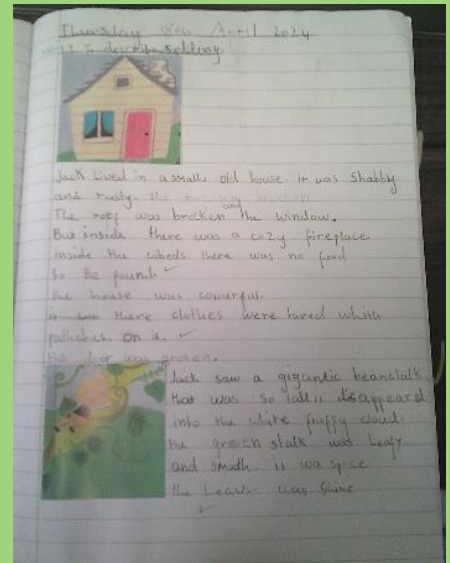 Thursday 18th April 2024
L.I To describe setting
Jack lived in a small old house. it was Shabby
and rusty.
The roof was brocken and the window.
But inside there was a cozy fireplace
inside the cubeds there was no food
to be found.
the house was colourful.
there clothes were tared whith
pathches. on it.
the door was
Jack saw a gigantic beanstalk
that was so tall it disappeared
into the white fluffy cloud.
the green stalk was leafy
and smoth. it was
the was